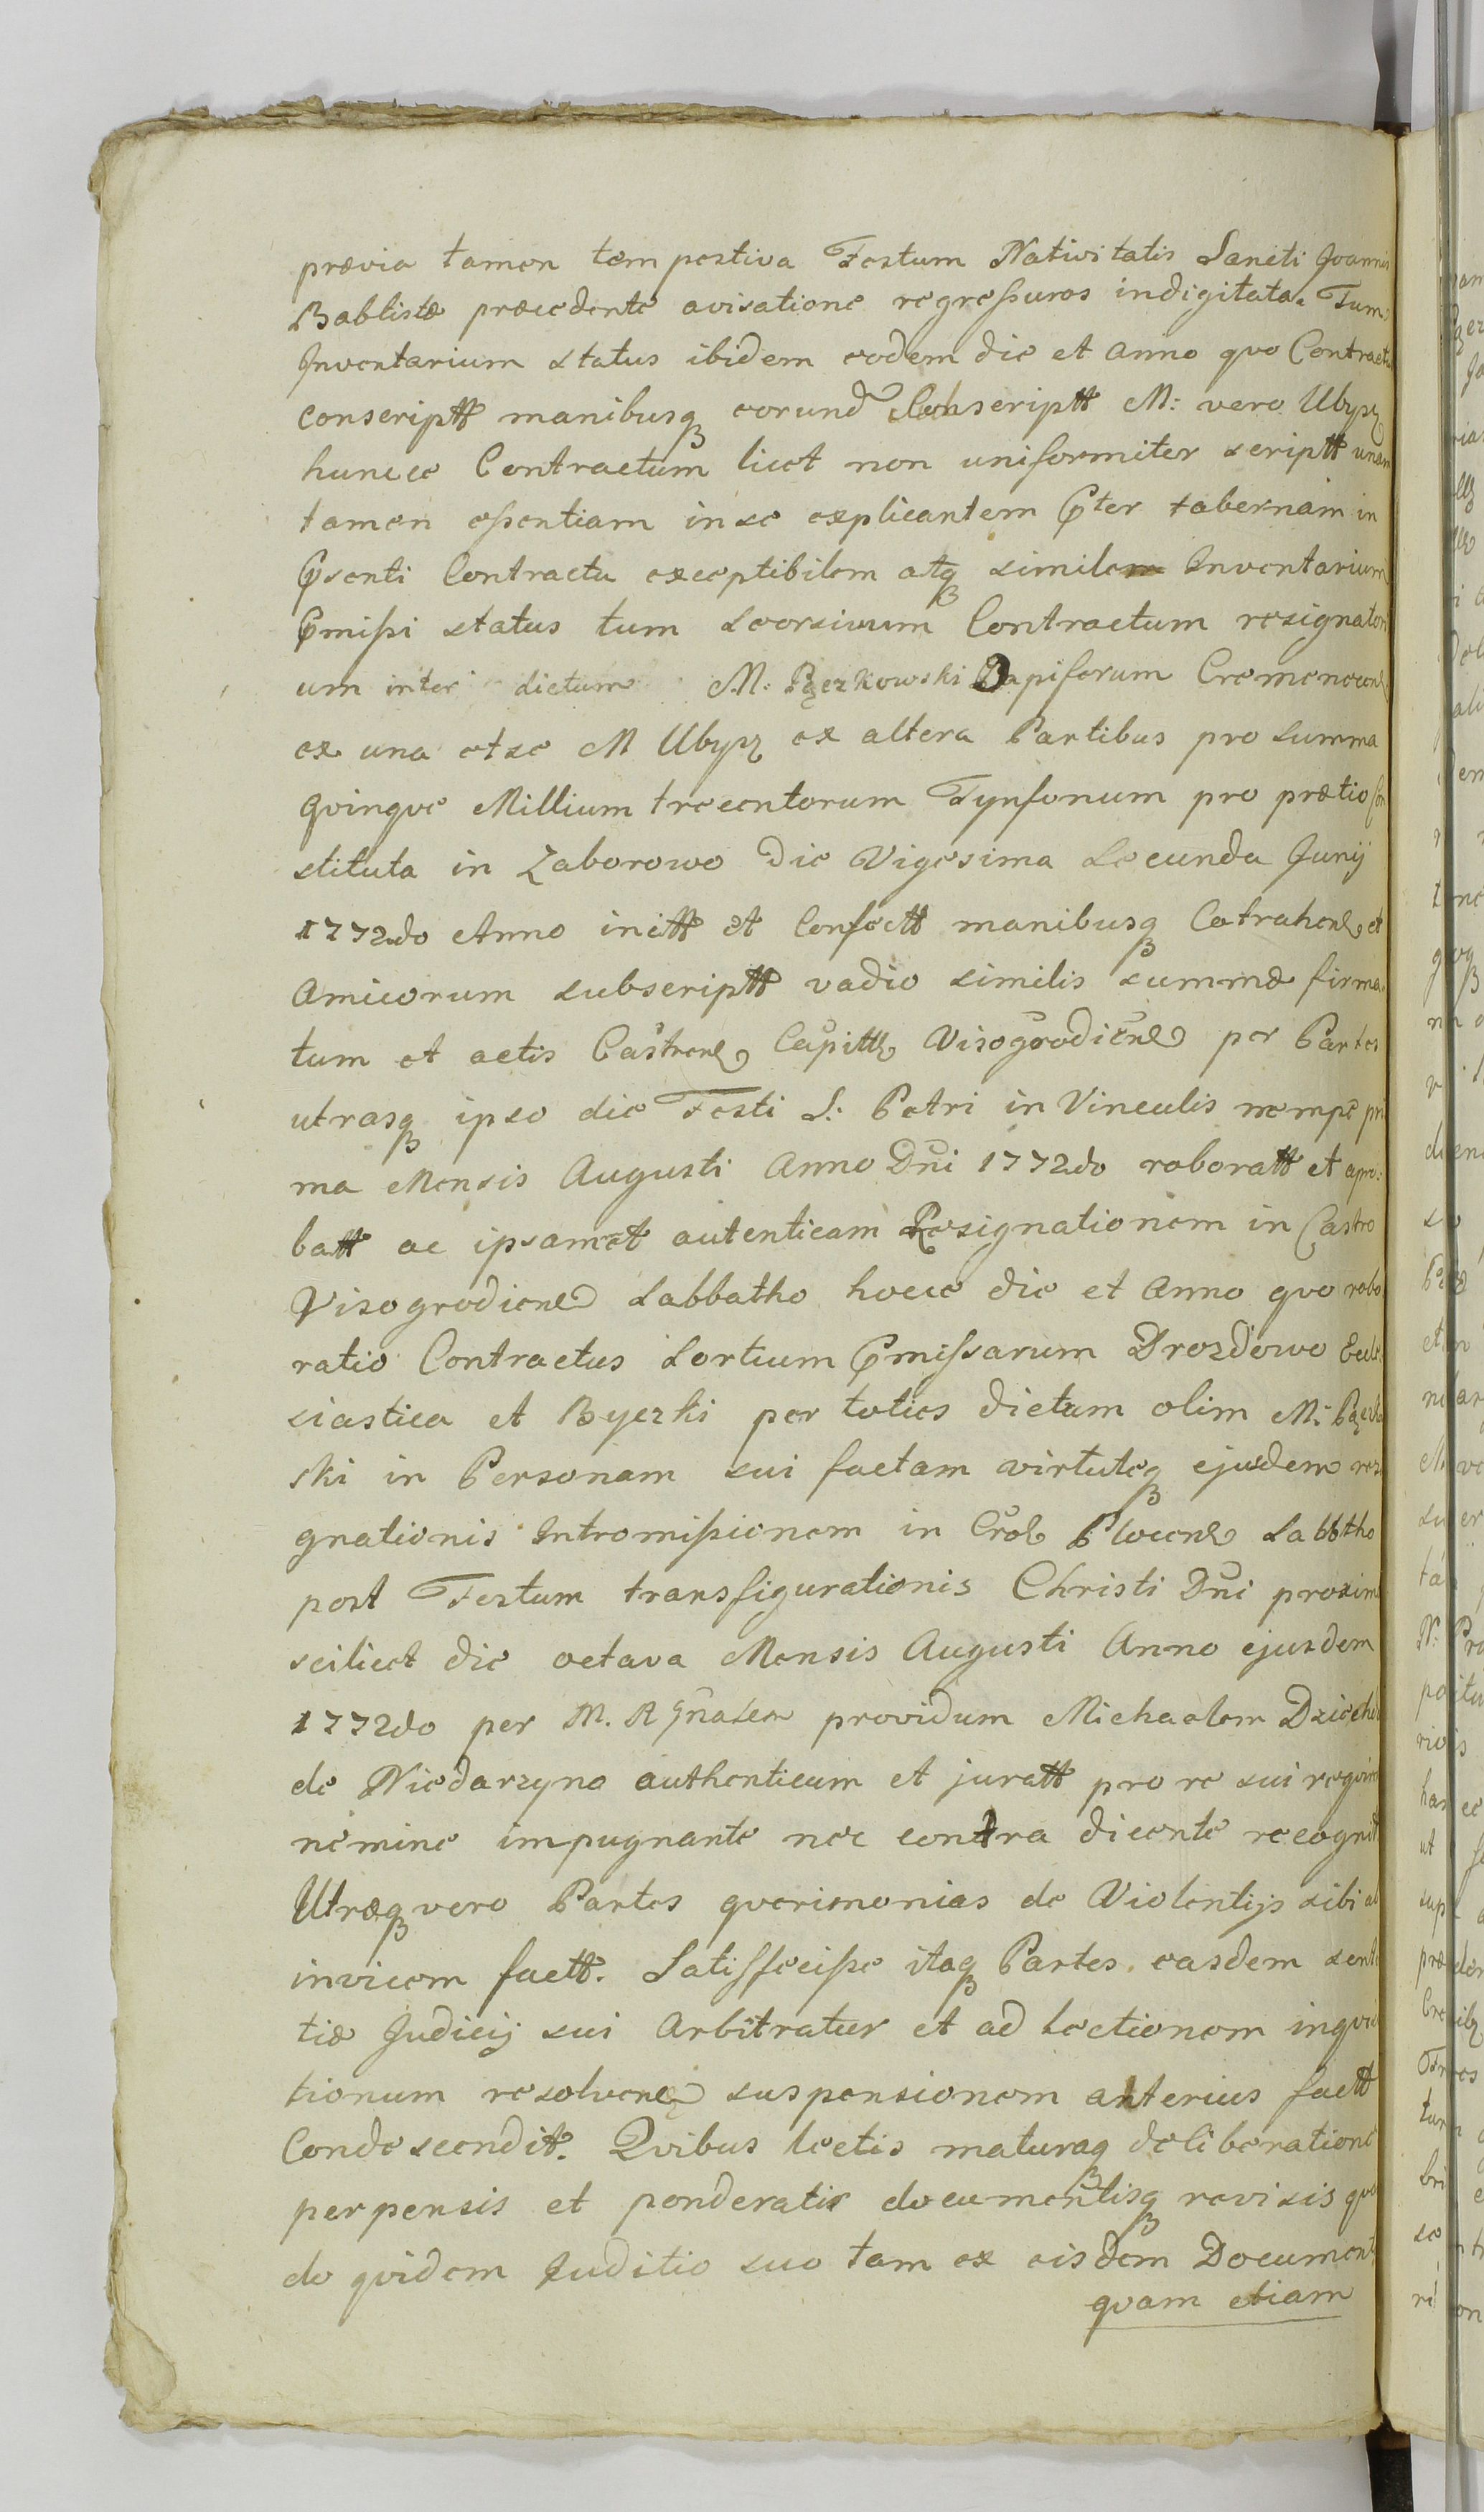 prævia tamen tempestiva Festum Nativitatis Sancti Joannis
Babtistæ præcedente avisatione regressuros indigitata. Tum
Inventarium status ibidem eodem die et Anno quo Contract
conscriptt manibusq eorund Subscriptt M: vero Ubysz
huncce Contractum licet non uniformiter scriptt unam
tamen essentiam in se explicantem Pter tabernam in
Psenti Contractu exceptibilem atq similem Inventarium
Pmissi status tum Seorsivum Contractum resignatori
um inter dictum M: Pęczkowski Dapiferum Cremenecen
ex una et se M Ubysz ex altera Partibus pro Summa
Quinque Millium trecentorum Tynfonum pro prætio Con
stituta in Zaborowo Die Vigesima Secunda Junij
1772do Anno initt et Confectt manibusq Cotrahen et
Amicorum subscriptt vadio similis summæ firma
tum et actis Castren Capitt Visogrodien per Partes
utrasq ipso die Festi S: Petri in Vinculis nempe pri
ma Mensis Augusti Anno Dni 1772do roboratt et apro:
batt ac ipsamet autenticam Resignationem in Castro
Visogrodien Sabbatho hocce die et Anno quo robo
ratio Contractus Sortium Pmissarum Drozdowo Eccle
siastica et Byczki per toties dictum olim M:
ski in Personam sui factam virtuteq ejusdem resi
gnationis Intromissionem in Plocen Sabbtho
post Festum transfigurationis Christi Dni proxim
scilicet die octava Mensis Augusti Anno ejusdem
1772do per M. R Gnalem providum Michaelem
de Niedarzyno authenticum et juratt pro re sui requiren
nemine impugnante nec contra dicente recognit
Utræq vero Partes querimonias de Violentijs sibi ad
invicem factt. Satisfecisse itaq Partes easdem senten
tiæ Judicij sui Arbitratur et ad Lectionem inquisi
tionum resolven suspensionem anterius factt
Condescendit. Quibus lectis maturaq deliberatione
perpensis et ponderatis documentisq revisis quo
do quidem Juditio suo tam ex eisdem Document
quam etiam